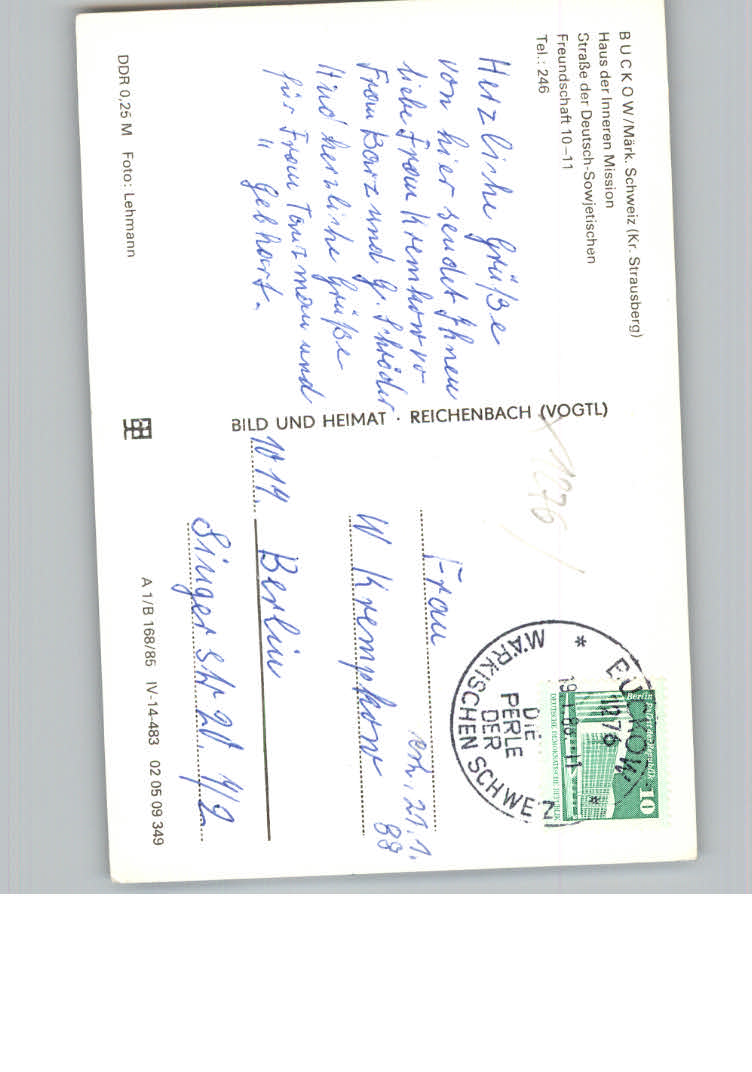 BUCKOW/Märk. Schweiz (Kr. Strausberg)
Haus der Inneren Mission
Straße der Deutsch-Sowjetischen
Freundschaft 10–11
Tel.: 246
Herzliche Grüße
von hier sendet Ihnen
liebe Frau Krem
Frau Barz und G. Schröder
Und herzliche Grüße
für Frau Tautzmau und
" Gebhart.
DDR 0,25 M Foto: Lehmann
BILD UND HEIMAT · REICHENBACH (VOGTL)
1276
BUCKOW
1276
19.1.88-11
DIE
PERLE
DER
MÄRKISCHEN SCHWEIZ
Berlin Palast der Republik
10
DEUTSCHE DEMOKRATISCHE REPUBLIK
Frau
21.1.
88
W Krempkow
Berlin
Singerstr
A 1/B 168/85 IV-14-483 02 05 09 349